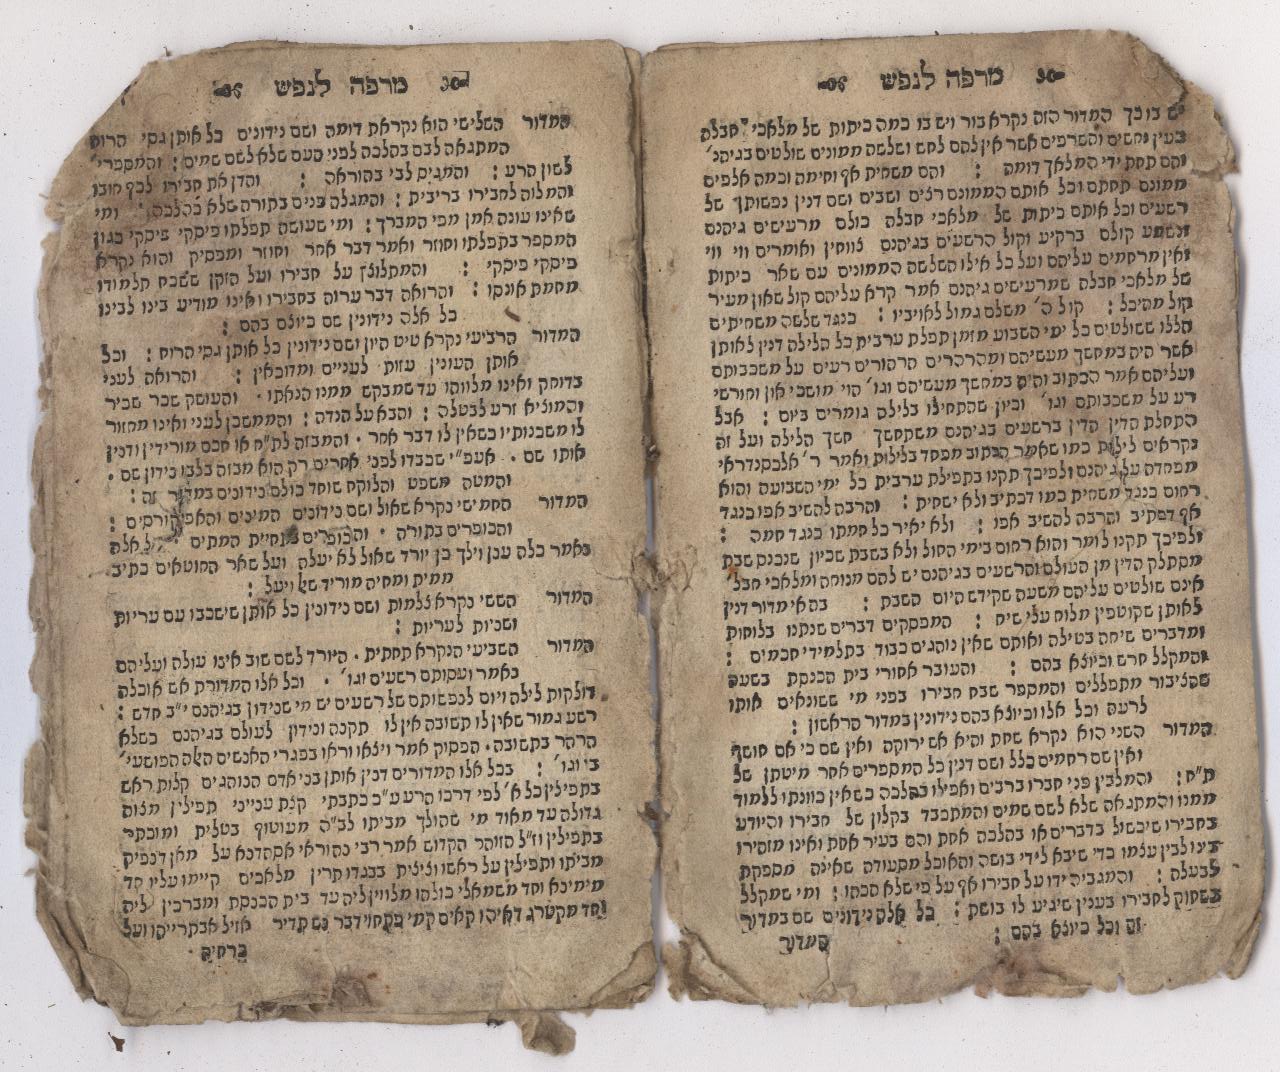 מרפה לנפש
יש בו כך המדור הזה נקרא בור ויש בו כמה כיתות של מלאכי חבלה
כעין נחשים והשרפים אשר אין להם לחש ושלשה ממונים שולטים בגיהנ׳
והם תחת ידי המלאך דומה : והם משחית אף וחימה וכמה אלפים
ממונם תחתם וכל אותם הממונם רצים ושבים ושם דנין נפשותן של
רשעים וכל אותם כיתות של מלאכי חבלה כולם מרעישים גיהנם
ונשמע קולם ברקיע וקול הרשעים בגיהנם צווחין ואומרים ווי ווי
ואין מרחמים עליהם ועל כל אילו השלשה הממונים עם שאר כיתות
של מלאכי חבלה שמרעישים גיהנם אמר קרא עליהם קול שאון מעיר
קול מהיכל : קול ה׳ משלם גמול לאויביו : כנגד שלשה משחיתים
הללו ששולטים כל ימי השבוע מזמן תפלת ערבית כל הלילה דנין לאותן
אשר היה במחשך מעשיהם ומהרהרים הרהורים רעים על משכבותם
ועליהם אמר הכתוב והיה במחשך מעשיהם וגו׳ הוי חושבי און ופועלי
רע על משכבותם וגו׳ וכיון שהתחילו בלילה גומרים ביום : אבל
התחלת הדין הדין ברשעים בגיהנם משתחשך חשך הלילה ועל זה
נקראים לילות כמו שאמר הכתוב מפחד בלילות ואמר ר׳ אלכסנדראי
מפחדה על גיהנם ולפיכך תקנו בתפילת ערבית כל ימי השבועה והוא
רחום כנגד משחית כמו דכתיב ולא ישחית : והרבה להשיב אפו כנגד
אף דכתיב והרבה להשיב אפו : ולא יאיר כל חמתו כנגד חמה :
ולפיכך תקנו לומר והוא רחום בימי החול ולא בשבת שכיון שנכנס שבת
מסתלק הדין מן העולם והרשעים בגיהנם יש להם מנוחה ומלאכי חבל׳
אינם שולטים עליהם משעה שקידש היום השבת : בהאי מדור דנין
לאותן שקוטפין מלוח עלי שיח : המפסקים דברים שנתנו בלוחות
ומדברים שיחה בטילה ואותם שאין נוהגים כבוד בתלמידי חכמים :
והמקלל חרש וכיוצא בהם : והעובר אחורי בית הכנסת בשעה
שהציבור מתפללים והמספר שבח חבירו בפני מי ששונאים אותו
לרעה וכל אלו וכיוצא בהם נידונין במדור הראשון :
המדור השני הוא נקרא שחת והיא אש ירוקה ואין שם כי אם חושך
ואין שם רחמים כלל ושם דנין כל המספרים אחר מיטתן של
ת״ח : והמלבין פני חברו ברבים ואפילו בהלכה כשאין כוונתו ללמוד
ממנו והמתגאה שלא לשם שמים והמתכבד בקלון של חבירו והיודע
בחבירו שיכשול בדברים או בהלכה אחת והם בעיר אחת ואינו מזהירו
בינו לבין עצמו כדי שיבא לידי בושה והאוכל מסעודה שאינה מספקת
לבעלה : והמגביה ידו על חבירו אף על פי שלא הכהו : ומי שמקלל
בשחוק לחבירו בענין שיגיע לו בושת : כל אלה נידונים שם במדור
זה וכל כיוצא בהם :
המדור
מרפה לנפש
המדור השלישי הוא נקראת דומה ושם נידונים כל אותן גסי הרוח
המתגאה לבם בהלכה לפני העם שלא לשם שמים : והמספרי׳
לשון הרע : והמגיס לבי בהוראה : והדן את חבירו לכף חובו
והמלוה לחבירו בריבית : והמגלה פנים בתורה שלא כהלכה : ומי
שאינו עונה אמן מפי המברך : ומי שעושה תפלתו פיסקי פיסקי כגון
המספר בתפלתו וחוזר ואמר דבר אחר וחוזר ומפסיק והוא נקרא
פיסקי פיסקי : והמתלוצץ על חבירו ועל הזקן ששכח תלמודו
מחמת אונסו : והרואה דבר ערוה בחבירו ואינו מודיע בינו לבינו
כל אלה נידונין שם כיוצא בהם :
המדור הרביעי נקרא טיט היון ושם נידונין כל אותן גסי הרוח : וכל
אותן העונין עזות לעניים ומדוכאין : והרואה לעני
בדוחק ואינו מלווהו עד שמבקש ממנו הנאתו · והעושק שכר שכיר
והמוציא זרע לבטלה : והבא על הנדה : והממשכן לעני ואינו מחזור
לו משכנותיו כשאין לו דבר אחר · והמבזה לת״ח או חכם מורידין ודנין
אותו שם · אעפ״י שכבדו לפני אחרים רק הוא מבזה בלבו נידון שם ·
והמטה משפט והלוקח שוחד כולם נידונים במדור זה :
המדור החמישי נקרא שאול ושם נידונים המינים והאפיקורסים :
והכופרים בתורה · והכופרים בתחיית המתים כל אלה
נאמר כלה ענן וילך כן יורד שאול לא יעלה ועל שאר החוטאים כתיב
ממית ומחיה מוריד שאול ויעל :
המדור הששי נקרא צלמות ושם נידונין כל אותן ששכבו עם עריות
ושניות לעריות :
המדור השביעי הנקרא תחתית · היורד לשם שוב אינו עולה ועליהם
נאמר ועסותם רשעים וגו׳ · וכל אלו המדורת אש אוכלה
דולקות לילה ויום לנפשותם של רשעים יש מי שנידון בגיהנם י״ב חדש :
רשע גמור שאין לו תשובה אין לו תקנה ונידון לעולם בגיהנם כשלא
הרהר בתשובה · הפסוק אמר ויצאו וראו בפגרי האנשים האלה הפושעי׳
בי וגו׳ : בכל אלו המדורים דנין אותן בני אדם הנוהגים קלות ראש
בתפילין כל א׳ לפי דרכו הרע ע״כ כתבתי קצת ענייני תפילין מצוה
גדולה עד מאוד מי שהולך מביתו לב״ה מעוטוף בטלית ומוכתר
בתפילין וז״ל הזוהר הקדוש אמר רבי נהוראי אסהדנא על מאן דנפיק
מביתו ותפילין על ראשו וציצית בבגדו תרין מלאכים קיימו עליו חד
מימינא וחד משמאלי כולהו מלווין ליה עד בית הכנסת ומברכין ליה
וחד מקטרג דאיהו קאים קמי פתחו דבר נש תדיר אזיל אבתרייהו ועל
ברחיה